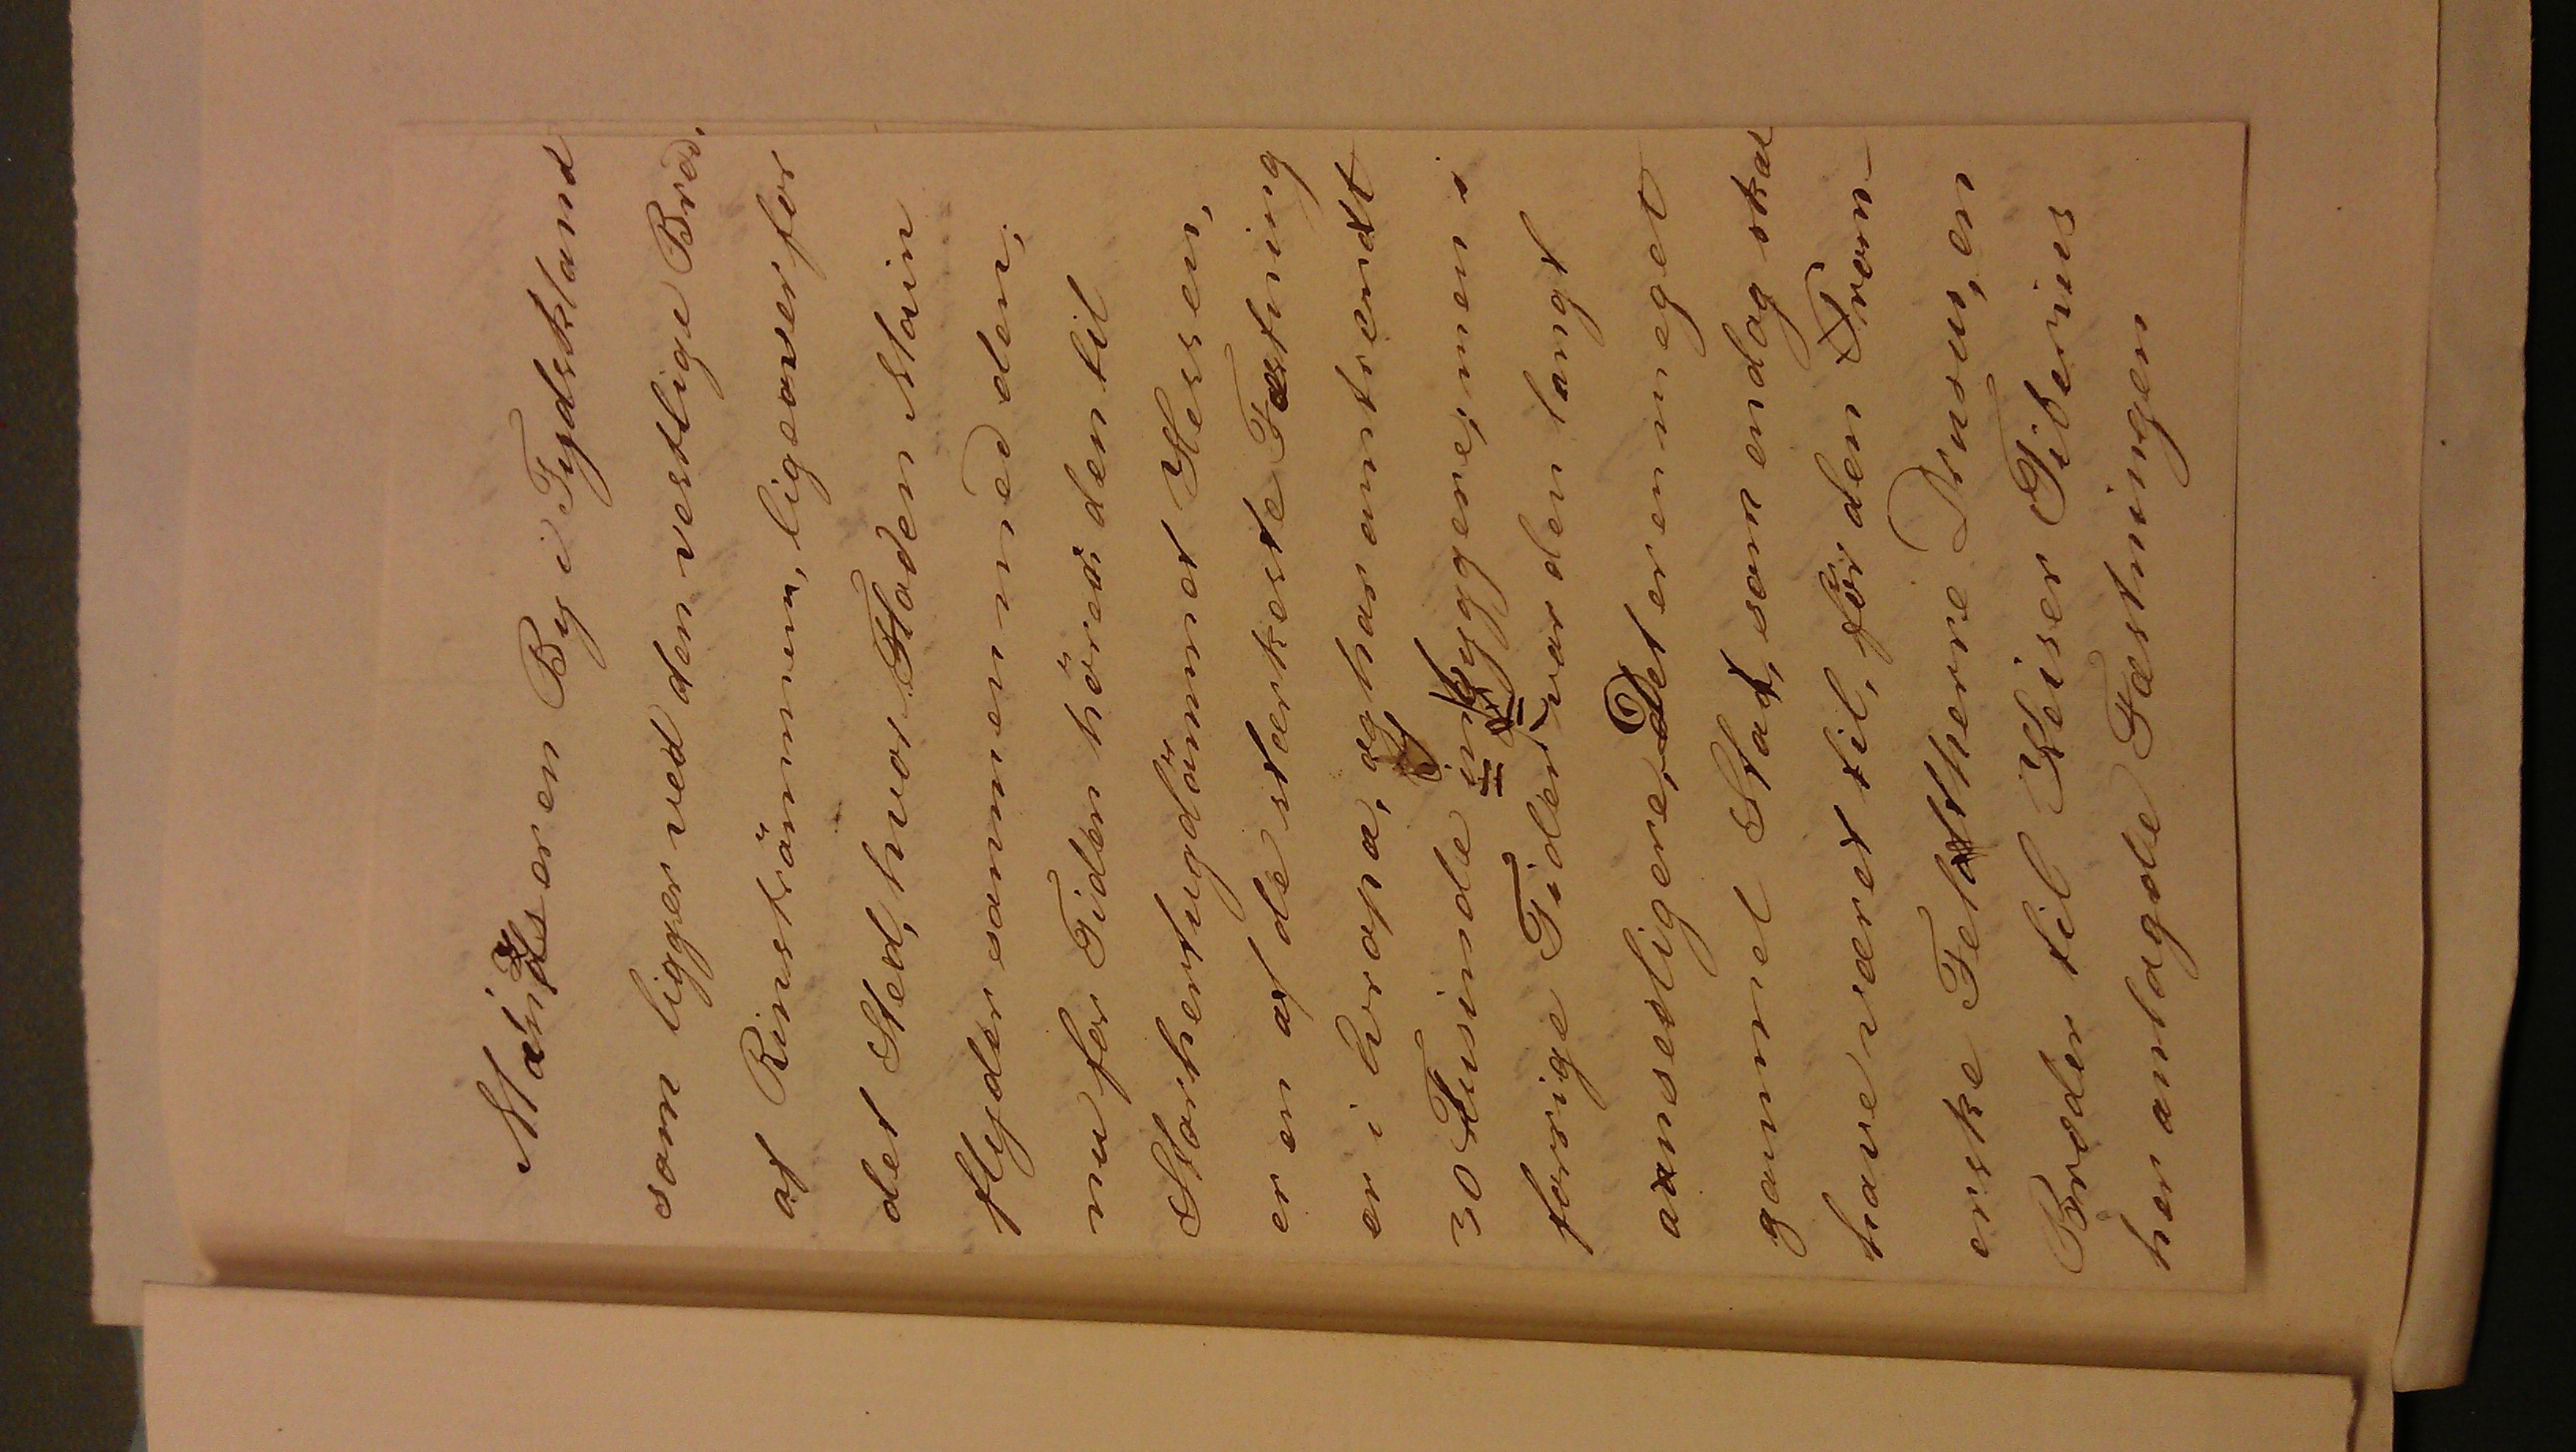 Maintz er en By i Tydskland
som ligger ved den vestlige Bred,
af Rinströmmen, ligeoverfor
det Sted, hvor Floden Main
flyder sammen med den;
nu for Tiden hörer den til
Storhertugdömmet Hessen,
er en af de stærkeste Fæstning
er i Evropa, og har omtrendt
30 Tusinde indbyggere, men i
forrige Tider var den langt
anseeligere. Det er en meget
gammel Stad, som endog skal
have været til, för den Rom-
erske Feltherre Drusus, en
Broder til Keiser Tiberius
her anlagde Fæstningen